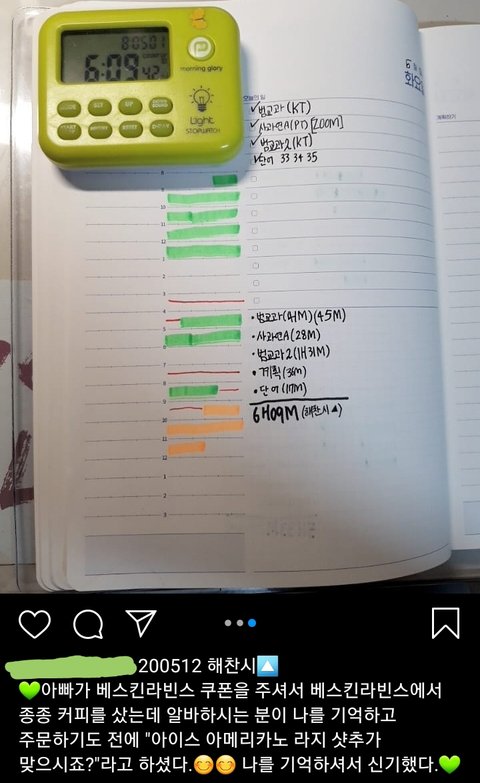 80501
6:09 42
morning glory
Light
STOPWATCH
오늘의 일
✓범교과(KT)
✓사과연A(PT)[ZOOM]
✓범교과2(KT)
✓단어 33 34 35
8
9
10
11
12
1
2
3
4
5
6
7
8
9
10
11
12
1
2
3
•범교과(41M)(45M)
•사과연A(28M)
•범교과2(1H31M)
•계획(36M)
•단어(17M)
6H09M (해찬시▲)
200512 해찬시🔼
💚아빠가 베스킨라빈스 쿠폰을 주셔서 베스킨라빈스에서
종종 커피를 샀는데 알바하시는 분이 나를 기억하고
주문하기도 전에 "아이스 아메리카노 라지 샷추가
맞으시죠?"라고 하셨다.😊😊 나를 기억하셔서 신기했다.💚